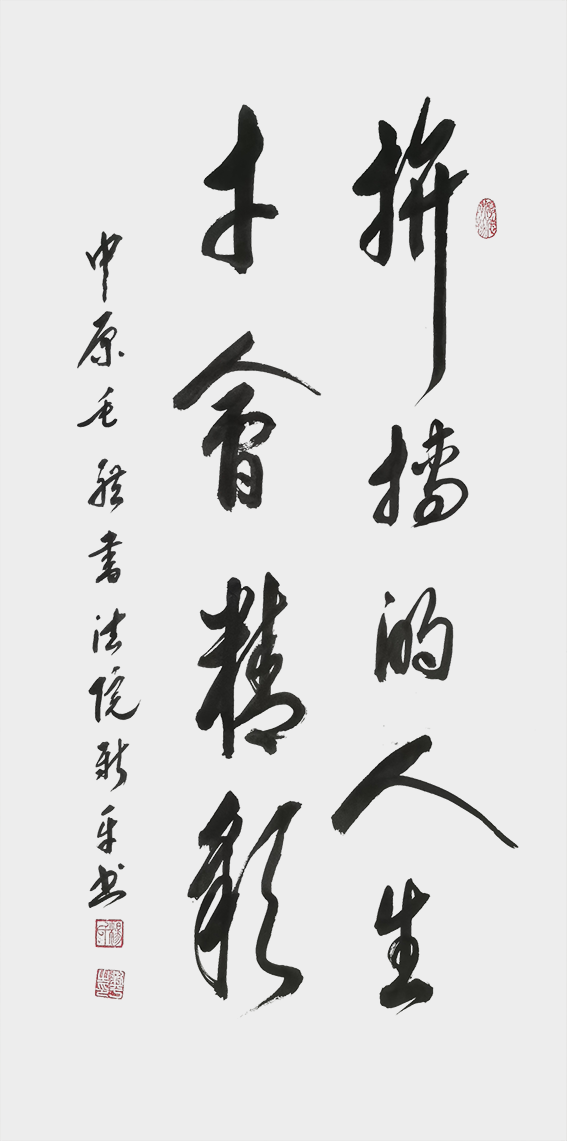 拼搏的人生
才會精彩
中原毛體書法院新平书